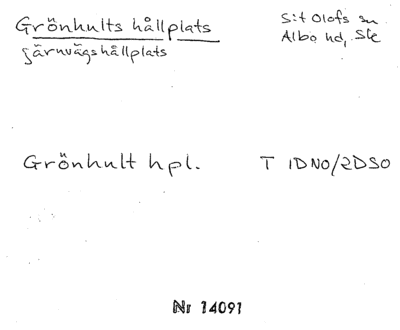 Grönhults hållplats
järnvägshållplats
S:t Olofs sn
Albo hd, Ske
Grönhult hpl. T 1DNO/2DSO
Nr 14091